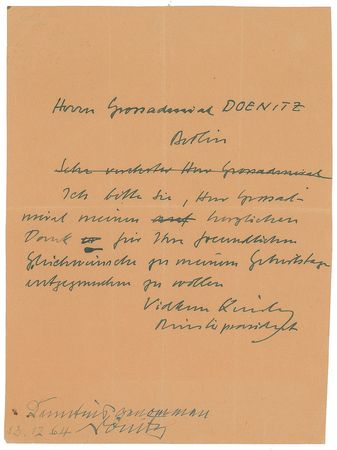 Herrn Grossadmiral DOENITZ
Berlin
Sehr verehrter Herr Grossadmiral
Ich bitte Sie, Herr Grossad-
miral meinen herzlichen
Dank für Ihre freundlichen
Glückwünsche zu meinem Geburtstage
entgegennehmen zu wollen
Vidkun Quisling
Ministerpräsident
Kenntnis genommen
13.12.64 Dönitz